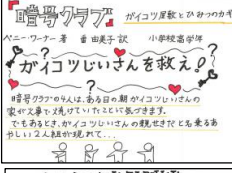 『暗号クラブ』 ガイコツ屋敷とひみつのカギ
ペニー・ワーナー著 番由美子訳 小学校高学年
ガイコツじいさんを救え!?
暗号クラブの4人は、ある日の朝ガイコツじいさんの
家が火事で焼けていたことに気づきます。
でもあるとき、ガイコツじいさんの親せきだと名乗るあ
やしい2人組が現れて...